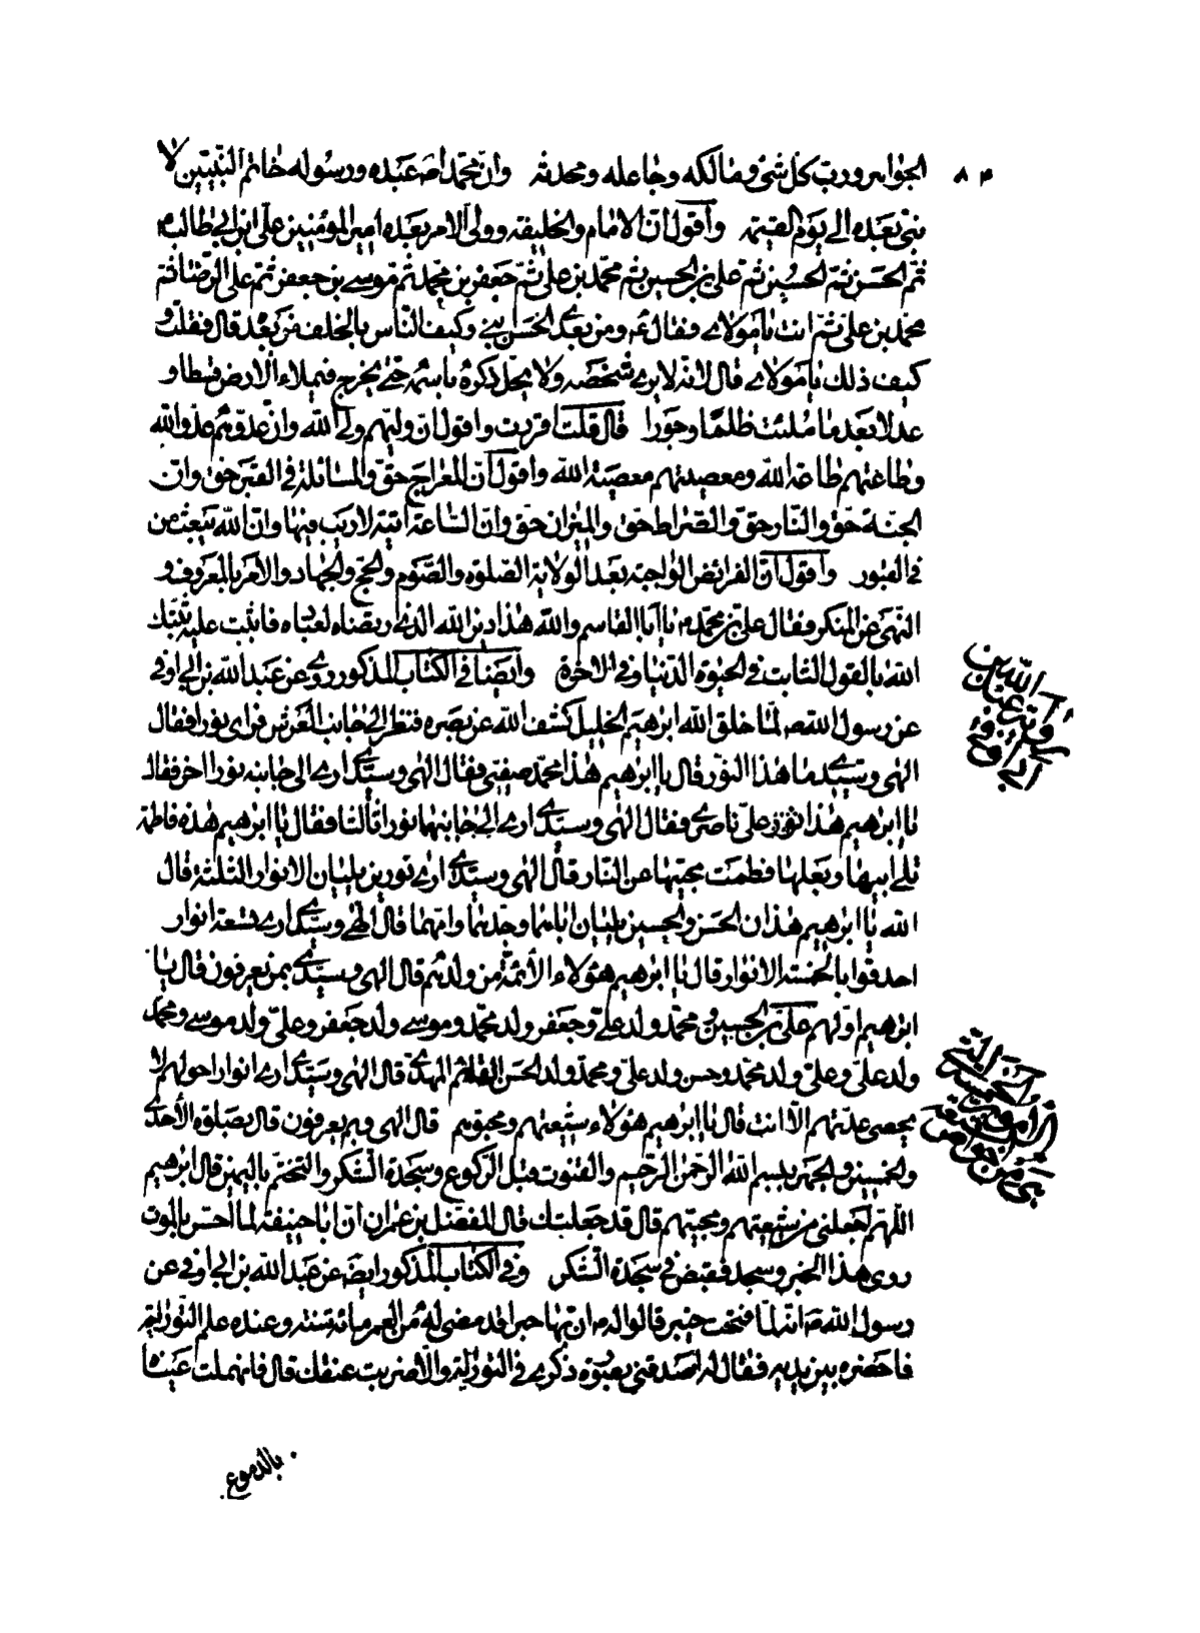 ٨٤
الجواهر ورب كل شئ ومالكه وجاعله ومحدثه وان محمدا ص عبده ورسوله خاتم النبيين لا
نبى بعده الى يوم القيمة واقول ان الامام والخليفة وولى الامر بعده امير المؤمنين على بن ابى طالب ع
ثم الحسن ثم الحسين ثم على بن الحسين ثم محمد بن على ثم جعفر بن محمد ثم موسى بن جعفر ثم على الرضا ثم
محمد بن على ثم انت يا مولاى فقال ع ومن بعدى الحسن ابنى وكيف الناس بالخلف من بعد قال فقلت و
كيف ذلك يا مولاى قال لانه لا يرى شخصه ولا يحل ذكره باسمه حتى يخرج فيملاء الارض قسطا و
عدلا بعد ما ملئت ظلما وجورا قال قلت اقررت واقول ان وليهم ولى الله وان عدوهم عدو الله
وطاعتهم طاعة الله ومعصيتهم معصية الله واقول ان المعراج حق والمسائلة فى القبر حق وان
الجنة حق والنار حق والصراط حق والميزان حق وان الساعة اتية لا ريب فيها وان الله يبعث من
فى القبور واقول ان الفرائض الواجبة بعد الولاية الصلوة والصوم والحج والجهاد والامر بالمعروف و
النهى عن المنكر فقال على بن محمد ع يا ابا القاسم والله هذا دين الله الذى ارتضاه لعباده فاثبت عليه ثبتك
الله بالقول الثابت فى الحيوة الدنيا وفى الاخرة وايضا فى الكتاب المذكور روى عن عبد الله بن ابى اوفى
عن رسول الله ص لما خلق الله ابرهيم الخليل كشف الله عن بصره فنظر الى جانب العرش فراى نورا فقال
الهى وسيدى ما هذا النور قال يا ابرهيم هذا محمد صفيى فقال الهى وسيدى ارى الى جانبه نورا اخر فقال
يا ابرهيم هذا نور على ناصر دينى فقال الهى وسيدى ارى الى جانبهما نورا ثالثا فقال يا ابرهيم هذه فاطمة
تلى ابيها وبعلها فطمت محبيها عن النار قال الهى وسيدى ارى نورين يليان الانوار الثلثة قال
الله يا ابرهيم هذان الحسن والحسين يليان اباهما وجدهما وامهما قال الهى وسيدى ارى تسعة انوار
احدقوا بالخمسة الانوار قال يا ابرهيم هؤلاء الائمة من ولدهم قال الهى وسيدى بمن يعرفون قال يا
ابرهيم اولهم على بن الحسين ومحمد ولد على وجعفر ولد محمد وموسى ولد جعفر وعلى ولد موسى ومحمد
ولد على وعلى ولد محمد وحسن ولد على ومحمد ولد الحسن القائم المهدى قال الهى وسيدى ارى انوارا حولهم لا
يحصى عدتهم الا انت قال يا ابرهيم هؤلاء شيعتهم ومحبوهم قال الهى وبم يعرفون قال بصلوة الاحدى
والخمسين والجهر ببسم الله الرحمن الرحيم والقنوت قبل الركوع وسجدة الشكر والتختم باليمين قال ابرهيم
اللهم اجعلنى من شيعتهم ومحبيهم قال قد جعلتك قال المفضل بن عمران ان ابا حنيفة لما احس بالموت
روى هذا الخبر وسجد فقبض فى سجدة الشكر وفى الكتاب المذكور ايضا عن عبد الله بن ابى اوفى عن
رسول الله ص انه لما فتحت خيبر قالوا له ان بها حبرا قد مضى له من العمر مائة سنة وعنده علم التورية
فاحضره بين يديه فقال له اصدقنى بصورة ذكرى فى التورية والا ضربت عنقك قال فانهملت عيناه
بالدموع